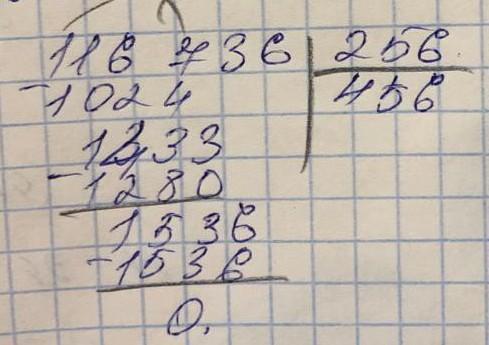 116 736 | 256
- 1024 | 456
1433
- 1280
1536
- 1536
0.